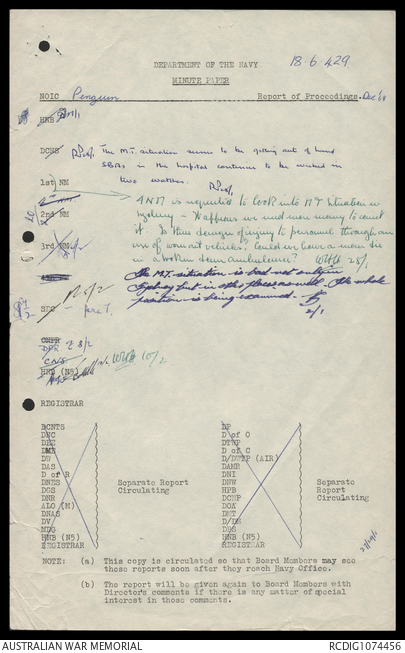 18.6.429
DEPARTMENT OF THE NAVY
MINUTE PAPER
NOIC Penguin Report of Proceedings. Dec
HNB
DCNS The M.T. situation seems to be getting out of hand
SBAs in the hospital continue to be worked in
two watches.
1st NM
2nd NM is requested to look into MT situation in
Sydney - It appears we need more money to correct
it. Is there danger of injury to personnel through an
use of worn out vehicles? Could we have a man die
in a broken down ambulance? 25/1
3rd NM
The M.T. situation is bad not only in
Sydney but in other places as well. The whole
position is being examined.
2/1
SEC
CNS
HNB (N5) 10/2
REGISTRAR
DCNTS
DNC
DEE
DMR
DW
DAS
D of R
DNES
DGS
DNR
ALO (M)
DNAS
DV
MDG
HNB (N5)
REGISTRAR
Separate Report
Circulating
DP
D of O
DTWP
D of C
D/DTWP (AIR)
DAMR
DNI
DNW
HPB
DCNP
DOA
DNT
DPS
HNB (N5)
REGISTRAR
Separate
Report
Circulating
NOTE: (a) This copy is circulated so that Board Members may see
these reports soon after they reach Navy Office.
(b) The report will be given again to Board Members with
Director's comments if there is any matter of special
interest in those comments.
AUSTRALIAN WAR MEMORIAL
RCDIG1074456